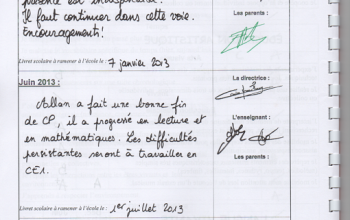 présence est indispensable.
Il faut continuer dans cette voie.
Encouragements!
Les parents :
Livret scolaire à ramener à l'école le : 7 janvier 2013
Juin 2013 :
La directrice :
Allan a fait une bonne fin
de CP, il a progressé en lecture et
en mathématiques. Les difficultés
persistantes seront à travailler en
CE1.
L'enseignant :
Les parents :
Livret scolaire à ramener à l'école le : 1er juillet 2013